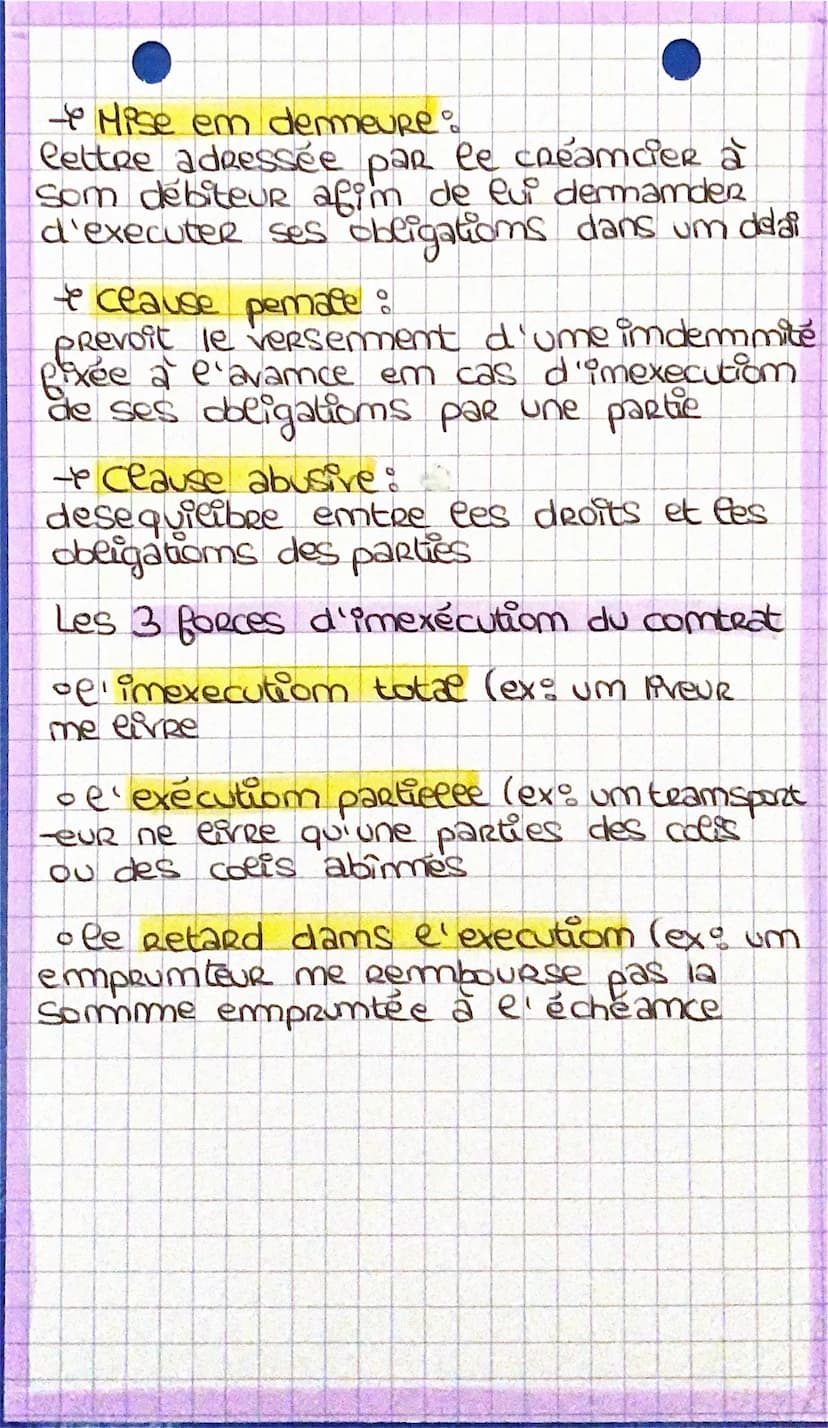 → Mise en demeure :
lettre adressée par le créancier à
son débiteur afin de lui demander
d'executer ses obligations dans un delai
→ Clause penale :
prevoit le versement d'une indemnité
fixée à l'avance en cas d'inexecution
de ses obligations par une partie
→ Clause abusive :
desequilibre entre les droits et les
obligations des parties
Les 3 forces d'inexécution du contrat
• l'inexecution totale (ex : un livreur
ne livre
• l'exécution partielle (ex : un transport
-eur ne livre qu'une parties des colis
ou des colis abîmés
• le retard dans l'execution (ex : un
emprunteur ne rembourse pas la
somme empruntée à l'échéance